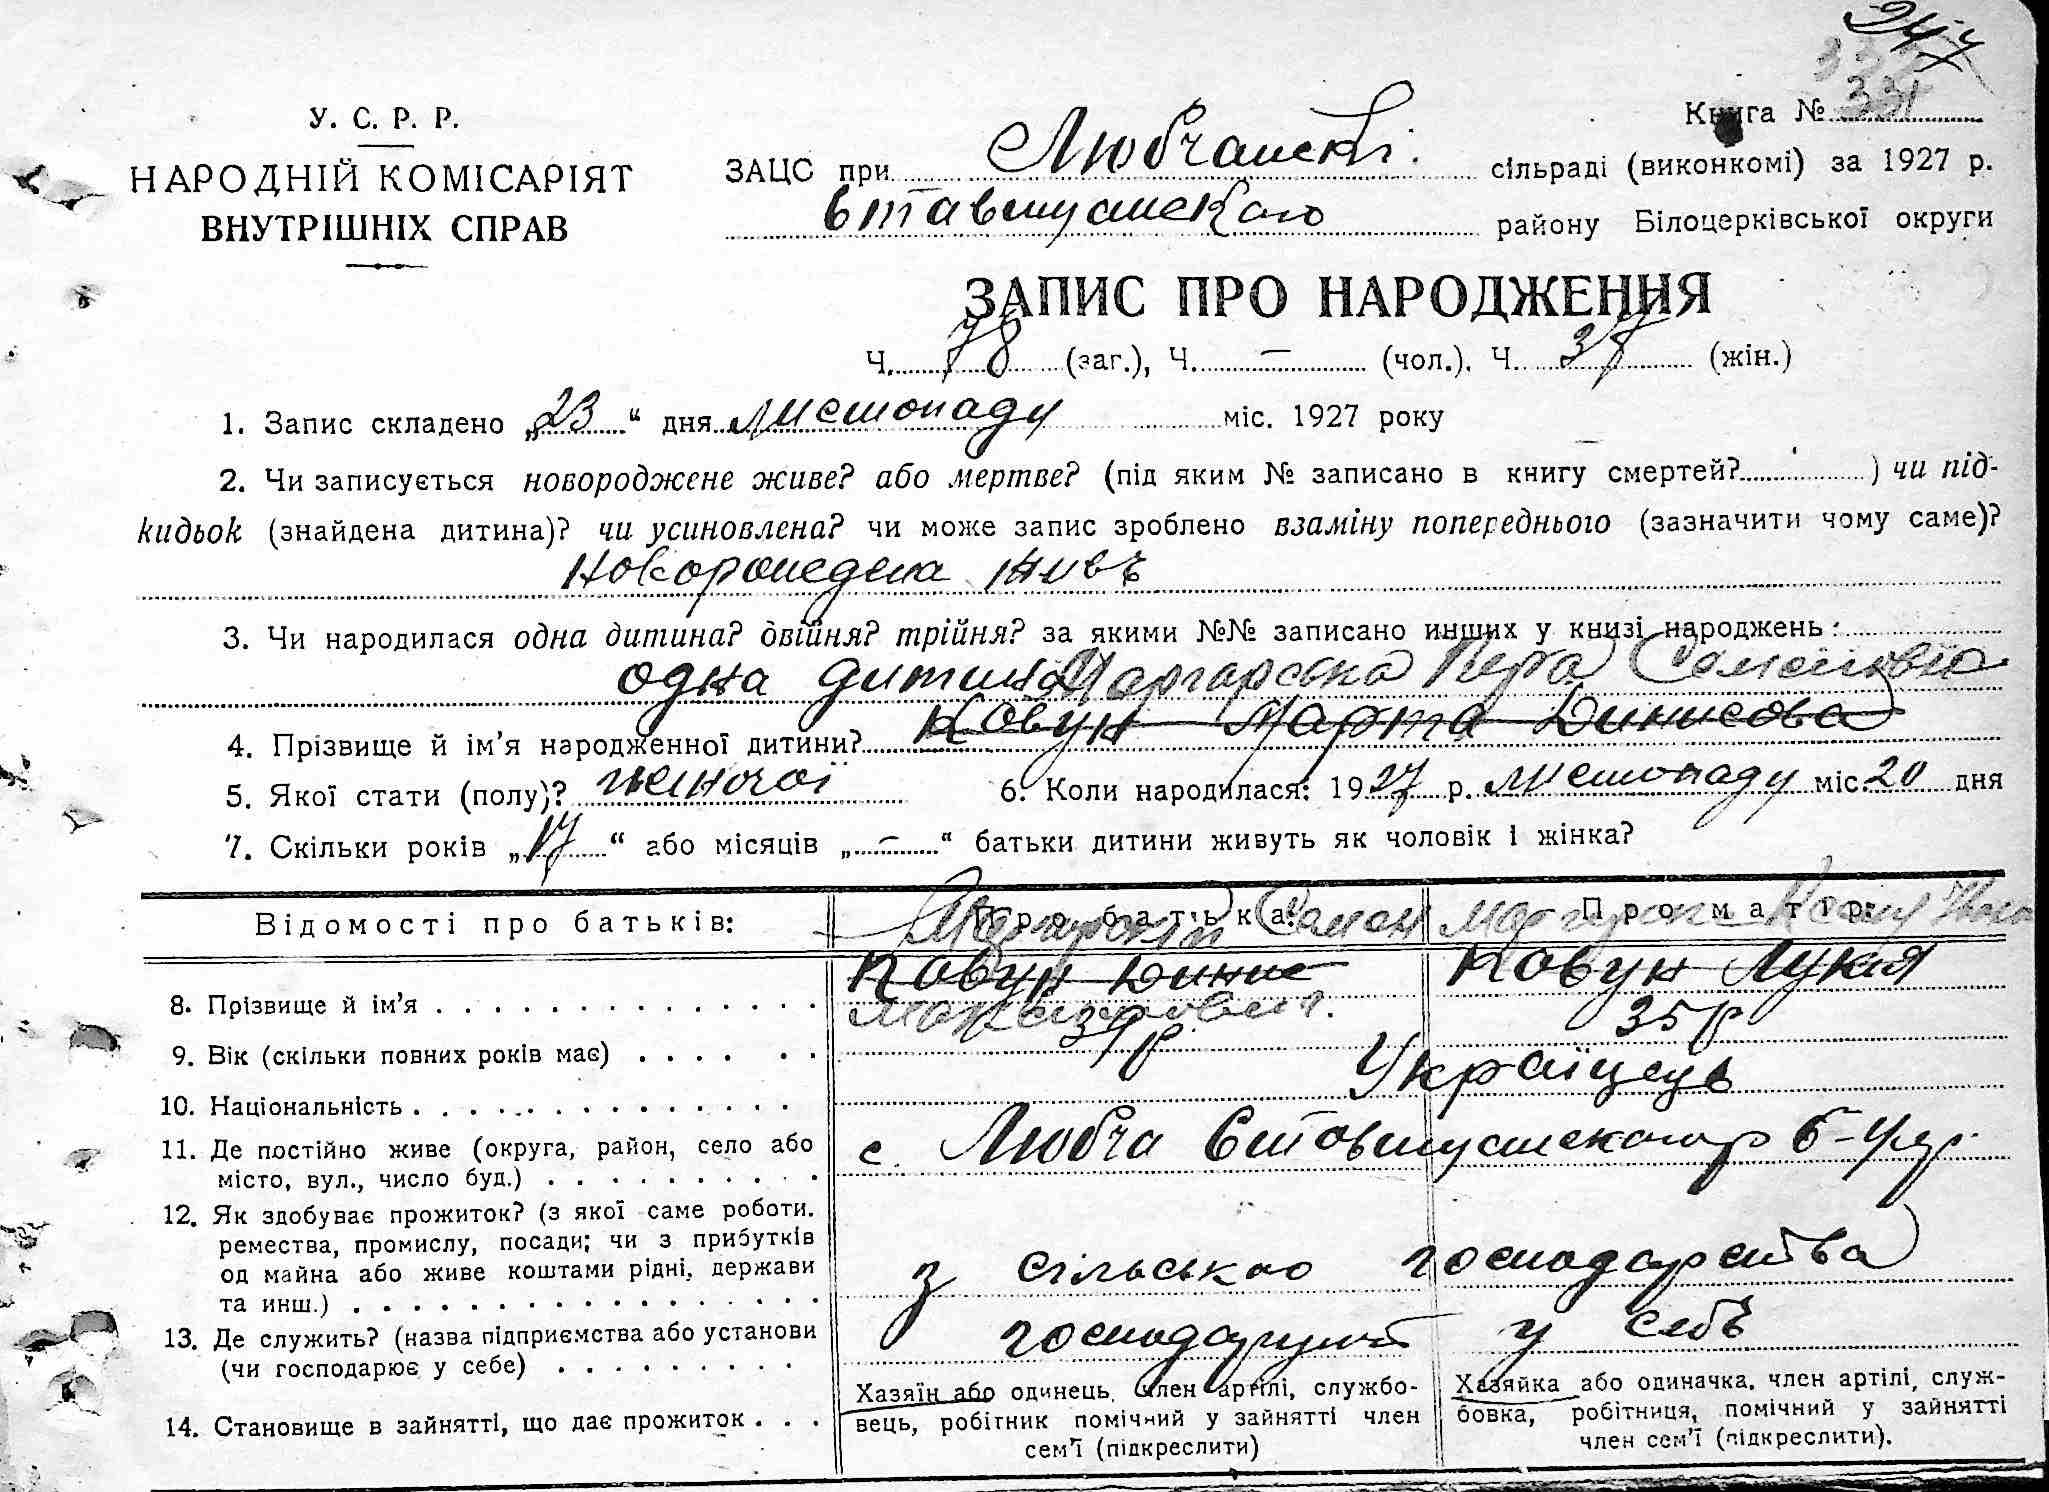 247
331
У. С. Р. Р.
НАРОДНІЙ КОМІСАРІЯТ
ВНУТРІШНІХ СПРАВ
Книга №
ЗАЦС при Любчанскі сільраді (виконкомі) за 1927 р.
Ставищанского району Білоцерківської округи
ЗАПИС ПРО НАРОДЖЕННЯ
Ч. 78 (заг.), Ч. — (чол.), Ч. 37 (жін.)
1. Запис складено „23“ дня листопаду міс. 1927 року
2. Чи записується новороджене живе? або мертве? (під яким № записано в книгу смертей? ) чи під-
кидьок (знайдена дитина)? чи усиновлена? чи може запис зроблено взаміну попереднього (зазначити чому саме)?
новорожедена живъ
3. Чи народилася одна дитина? двійня? трійня? за якими №№ записано инших у книзі народжень:
одна дитина Вера Семеновна
4. Прізвище й ім’я народженної дитини? Ковун Марта Динисова
5. Якої стати (полу)? жіночої 6. Коли народилася: 1927 р. листопаду міс. 20 дня
7. Скільки років „17“ або місяців „—“ батьки дитини живуть як чоловік і жінка?
Відомості про батьків: Про батька: Про матір:
Семен
8. Прізвище й ім’я Ковун Динис Ковун Лукія
9. Вік (скільки повних років має) 39р 35р
10. Національність Українць
11. Де постійно живе (округа, район, село або
місто, вул., число буд.) с. Любча Ставищанского р Б-Ц
12. Як здобуває прожиток? (з якої саме роботи.
ремества, промислу, посади; чи з прибутків
од майна або живе коштами рідні, держави
та инш.) з сільского господарства
13. Де служить? (назва підприємства або установи
(чи господарює у себе) господарують у себъ
14. Становище в зайнятті, що дає прожиток
Хазяїн або одинець, член артілі, службо-
вець, робітник помічний у зайнятті член
сем’ї (підкреслити)
Хазяйка або одиначка, член артілі, служ-
бовка, робітниця, помічний у зайнятті
член сем’ї (підкреслити).